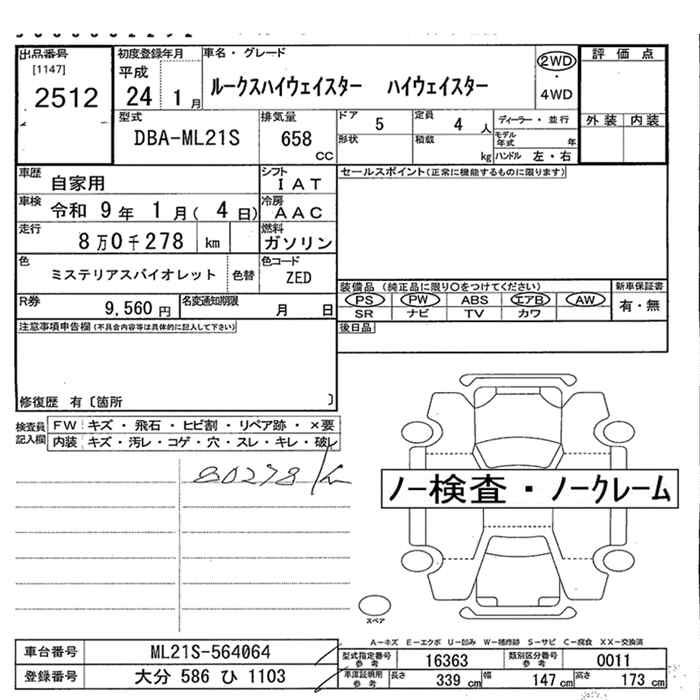 出品番号
[1147]
2512
初度登録年月
平成
24 1月
車名・グレード
ルークスハイウェイスター ハイウェイスター
2WD
・
4WD
評価点
外装 内装
型式
DBA-ML21S
排気量
658
CC
ドア 5
定員 4 人
形状
積載 kg
ディーラー・並行
モデル年式 年
ハンドル 左・右
車歴
自家用
シフト
IAT
車検
令和 9年 1月( 4日)
冷房
AAC
走行
8万0千278 km
燃料
ガソリン
色
ミステリアスバイオレット 色替
色コード
ZED
R券
9,560 円
名変通知期限
月 日
セールスポイント(正常に機能するものに限ります)
装備品 (純正品に限り○をつけてください)
PS PW ABS エアB AW
SR ナビ TV カワ
新車保証書
有・無
後日品
注意事項申告欄(不具合内容等は具体的に記入して下さい)
修復歴 有〔箇所 〕
検査員
記入欄
FW キズ・飛石・ヒビ割・リペア跡・×要
内装 キズ・汚レ・コゲ・穴・スレ・キレ・破レ
80278
ノー検査・ノークレーム
スペア
A－キズ E－エクボ U－凹み W－補修跡 S－サビ C－腐食 XX－交換済
車台番号 ML21S-564064
登録番号 大分 586 ひ 1103
型式指定番号
参考
16363
類別区分番号
参考
0011
車庫証明用
参考
長さ 339 cm 幅 147 cm 高さ 173 cm